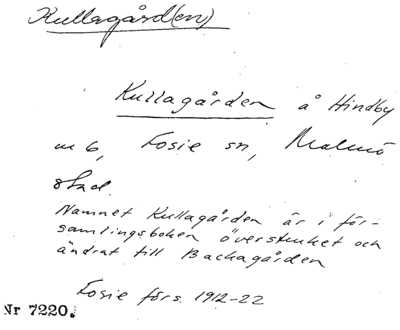 Kullagård(en)
Kullagården å Hindby
n 6, Fosie sn, Malmö
stad.
Namnet Kullagården är i för-
samlingsboken överstruket och
ändrat till Backagården
Fosie förs. 1912-22
Nr 7220.